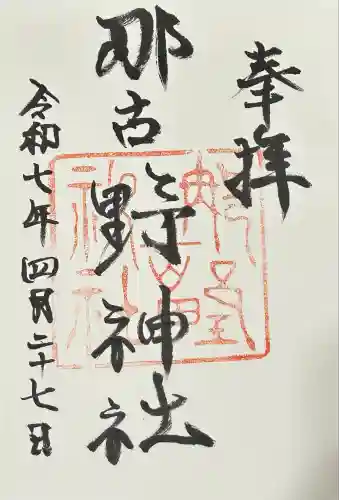 奉拝
那古野神社
令和七年四月二十七日